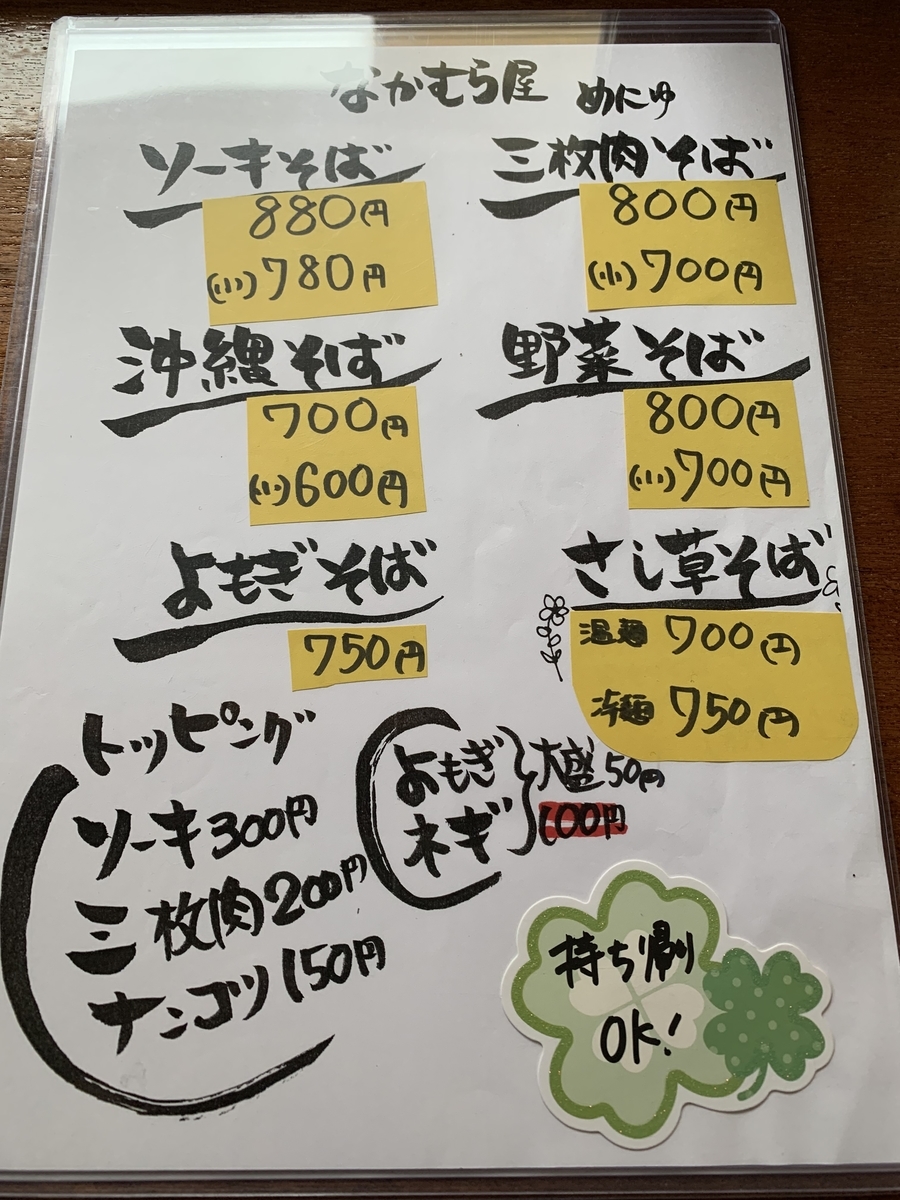 なかむら屋 めにゅ
ソーキそば
880円
(小)780円
三枚肉そば
800円
(小)700円
沖縄そば
700円
(小)600円
野菜そば
800円
(小)700円
よもぎそば
750円
さし草そば
温麺 700円
冷麺 750円
トッピング
ソーキ300円
三枚肉200円
ナンコツ150円
よもぎ
ネギ
大盛50円
100円
持ち帰り
OK!